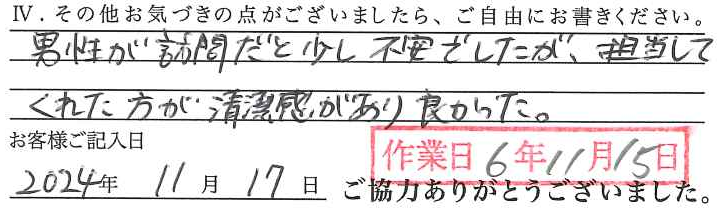 Ⅳ．その他お気づきの点がございましたら、ご自由にお書きください。
男性が訪問だと少し不安でしたが、担当して
くれた方が清潔感があり良かった。
お客様ご記入日
作業日 6年11月15日
2024年 11月 17日 ご協力ありがとうございました。